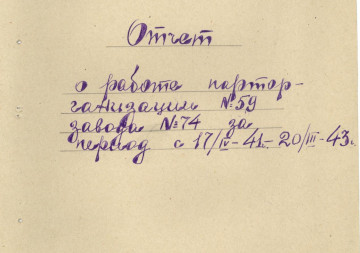 Отчет
о работе партор-
ганизации №59
завода №74 за
период с 17/IV-41-20/III-43.